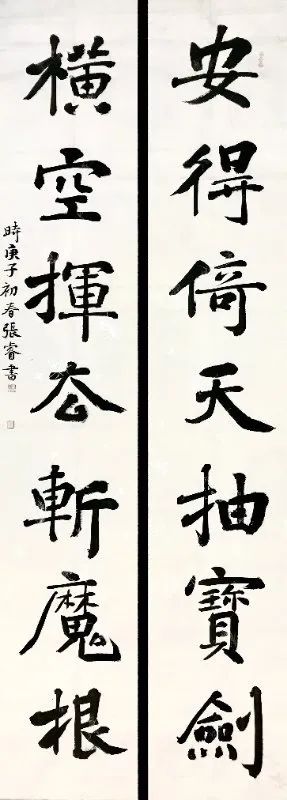 安得倚天抽寶劍
橫空揮去斬魔根
時庚子初春張睿書